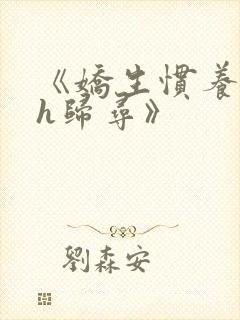 《嬌生慣養
h歸尋》
劉森安